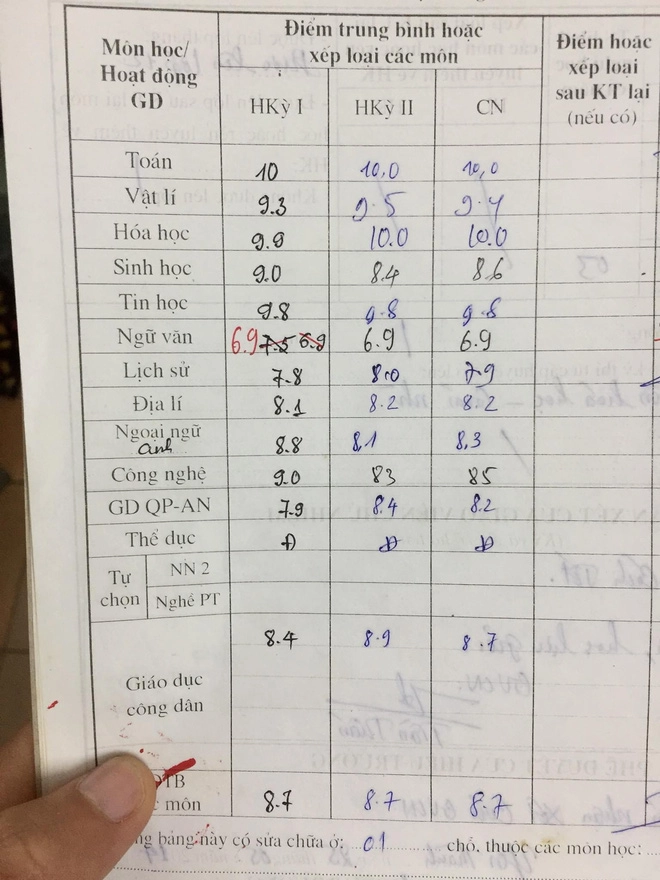 Môn học/ Hoạt động GD
Điểm trung bình hoặc xếp loại các môn
Điểm hoặc xếp loại sau KT lại (nếu có)
HKỳ I HKỳ II CN
Toán 10 10,0 10,0
Vật lí 9.3 9.5 9.4
Hóa học 9.9 10.0 10.0
Sinh học 9.0 8.4 8.6
Tin học 9.8 9.8 9.8
Ngữ văn 6.9 7.5 6.9 6.9 6.9
Lịch sử 7.8 8.0 7.9
Địa lí 8.1 8.2 8.2
Ngoại ngữ anh 8.8 8,1 8,3
Công nghệ 9.0 83 85
GD QP-AN 7.9 8.4 8.2
Thể dục Đ Đ Đ
Tự chọn
NN 2
Nghề PT
Giáo dục công dân 8.4 8.9 8.7
môn 8.7 8.7 8.7
bảng này có sửa chữa ở: 01 chỗ, thuộc các môn học: